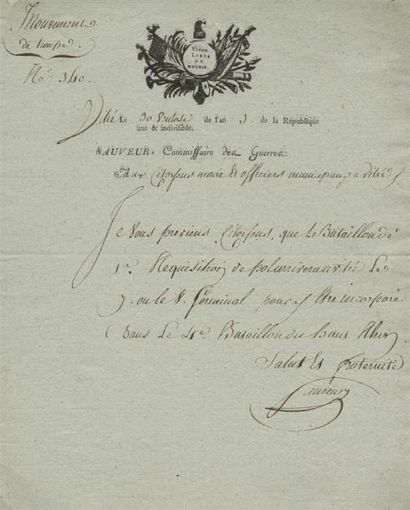 Mouvement
de troupes
No. 340.
VIVRE
LIBRE
OU
MOURIR
Le 30 Ventose de l'an 3. de la République
une & indivisible.
SAUVEUR Commissaire des Guerres
Aux Citoyens maire et officiers municipaux a
Je vous previens, Citoyens, que le Bataillon de
1re. Requisition de arrivera le
7 ou le 8. Germinal pour y Etre incorporé
Dans Le 4e. Bataillon du haut Rhin
Salut Et fraternité
Sauveur